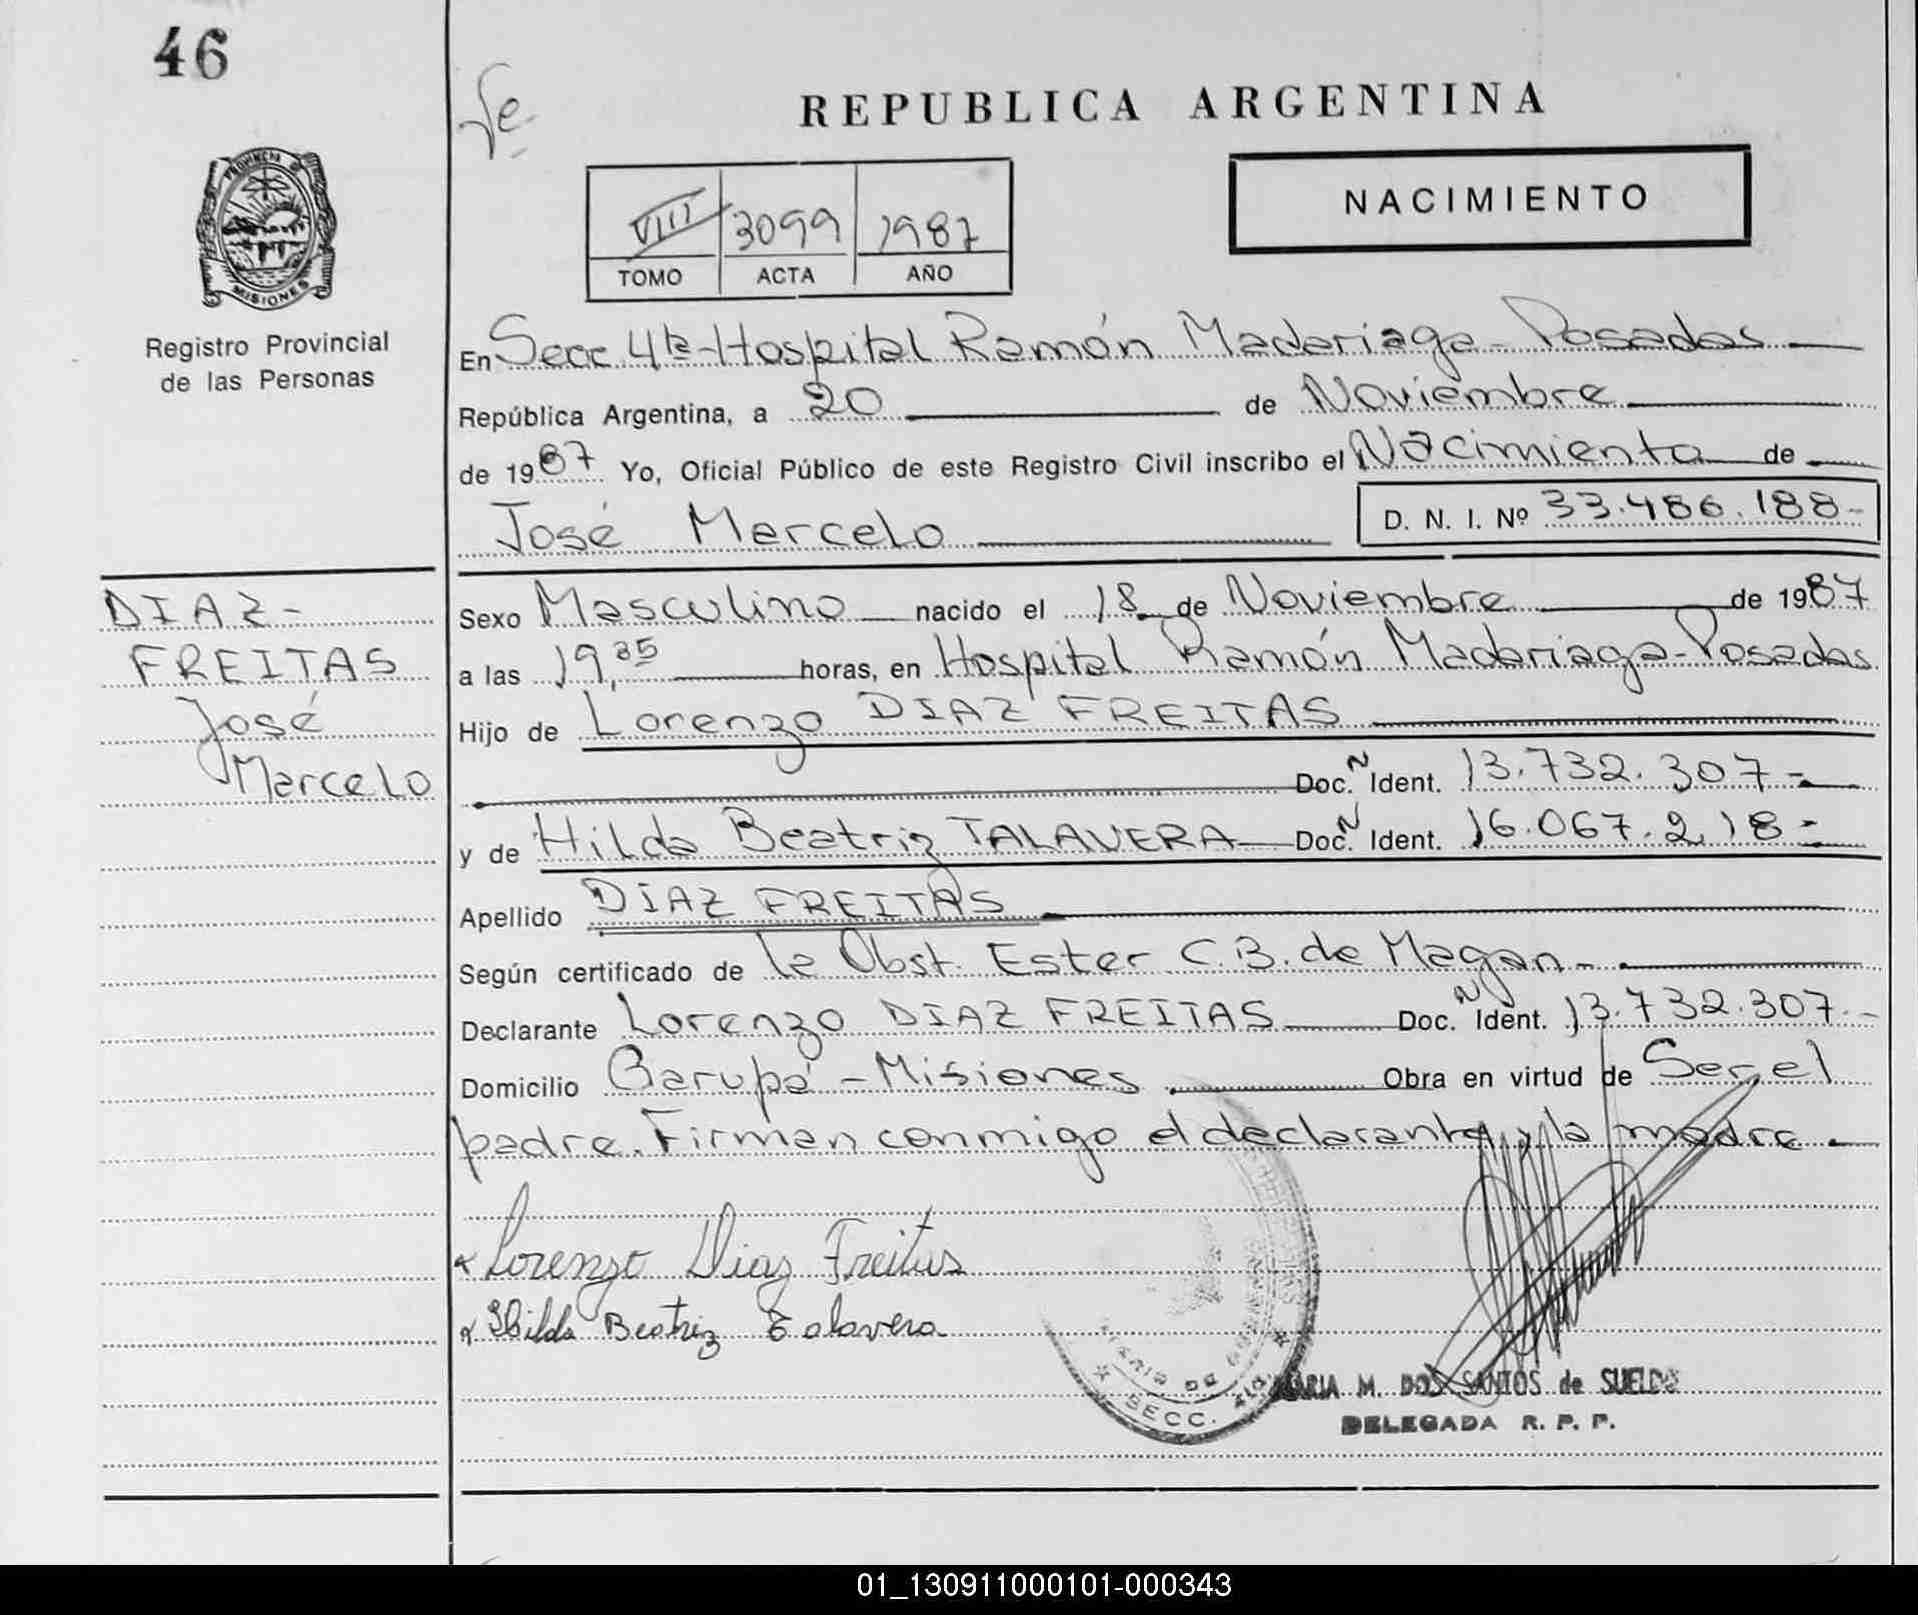 46
Fe
REPUBLICA ARGENTINA
PROVINCIA DE MISIONES
Registro Provincial
de las Personas
VIII 3099 1987
TOMO ACTA AÑO
NACIMIENTO
En Secc 4ta-Hospital Ramón Madariaga-Posadas
República Argentina, a 20 de Noviembre
de 1987 Yo, Oficial Público de este Registro Civil inscribo el Nacimiento de
José Marcelo D. N. I. Nº 33.486.188-
DIAZ-
FREITAS
José
Marcelo
Sexo Masculino nacido el 18 de Noviembre de 1987
a las 19,35 horas, en Hospital Ramón Madariaga-Posadas
Hijo de Lorenzo DIAZ FREITAS
Doc. N Ident. 13.732.307-
y de Hilda Beatriz TALAVERA Doc. N Ident. 16.067.218-
Apellido DIAZ FREITAS
Según certificado de la Obst. Ester C.B. de Magan-
Declarante Lorenzo DIAZ FREITAS Doc. N Ident. 13.732.307.-
Domicilio Garupá-Misiones Obra en virtud de Ser el
padre. Firman conmigo el declarante y la madre
Lorenzo Diaz Freitas
Hilda Beatriz Talavera
SECC. 4ta
MARIA M. DOS SANTOS de SUELDO
DELEGADA R. P. P.
01_130911000101-000343